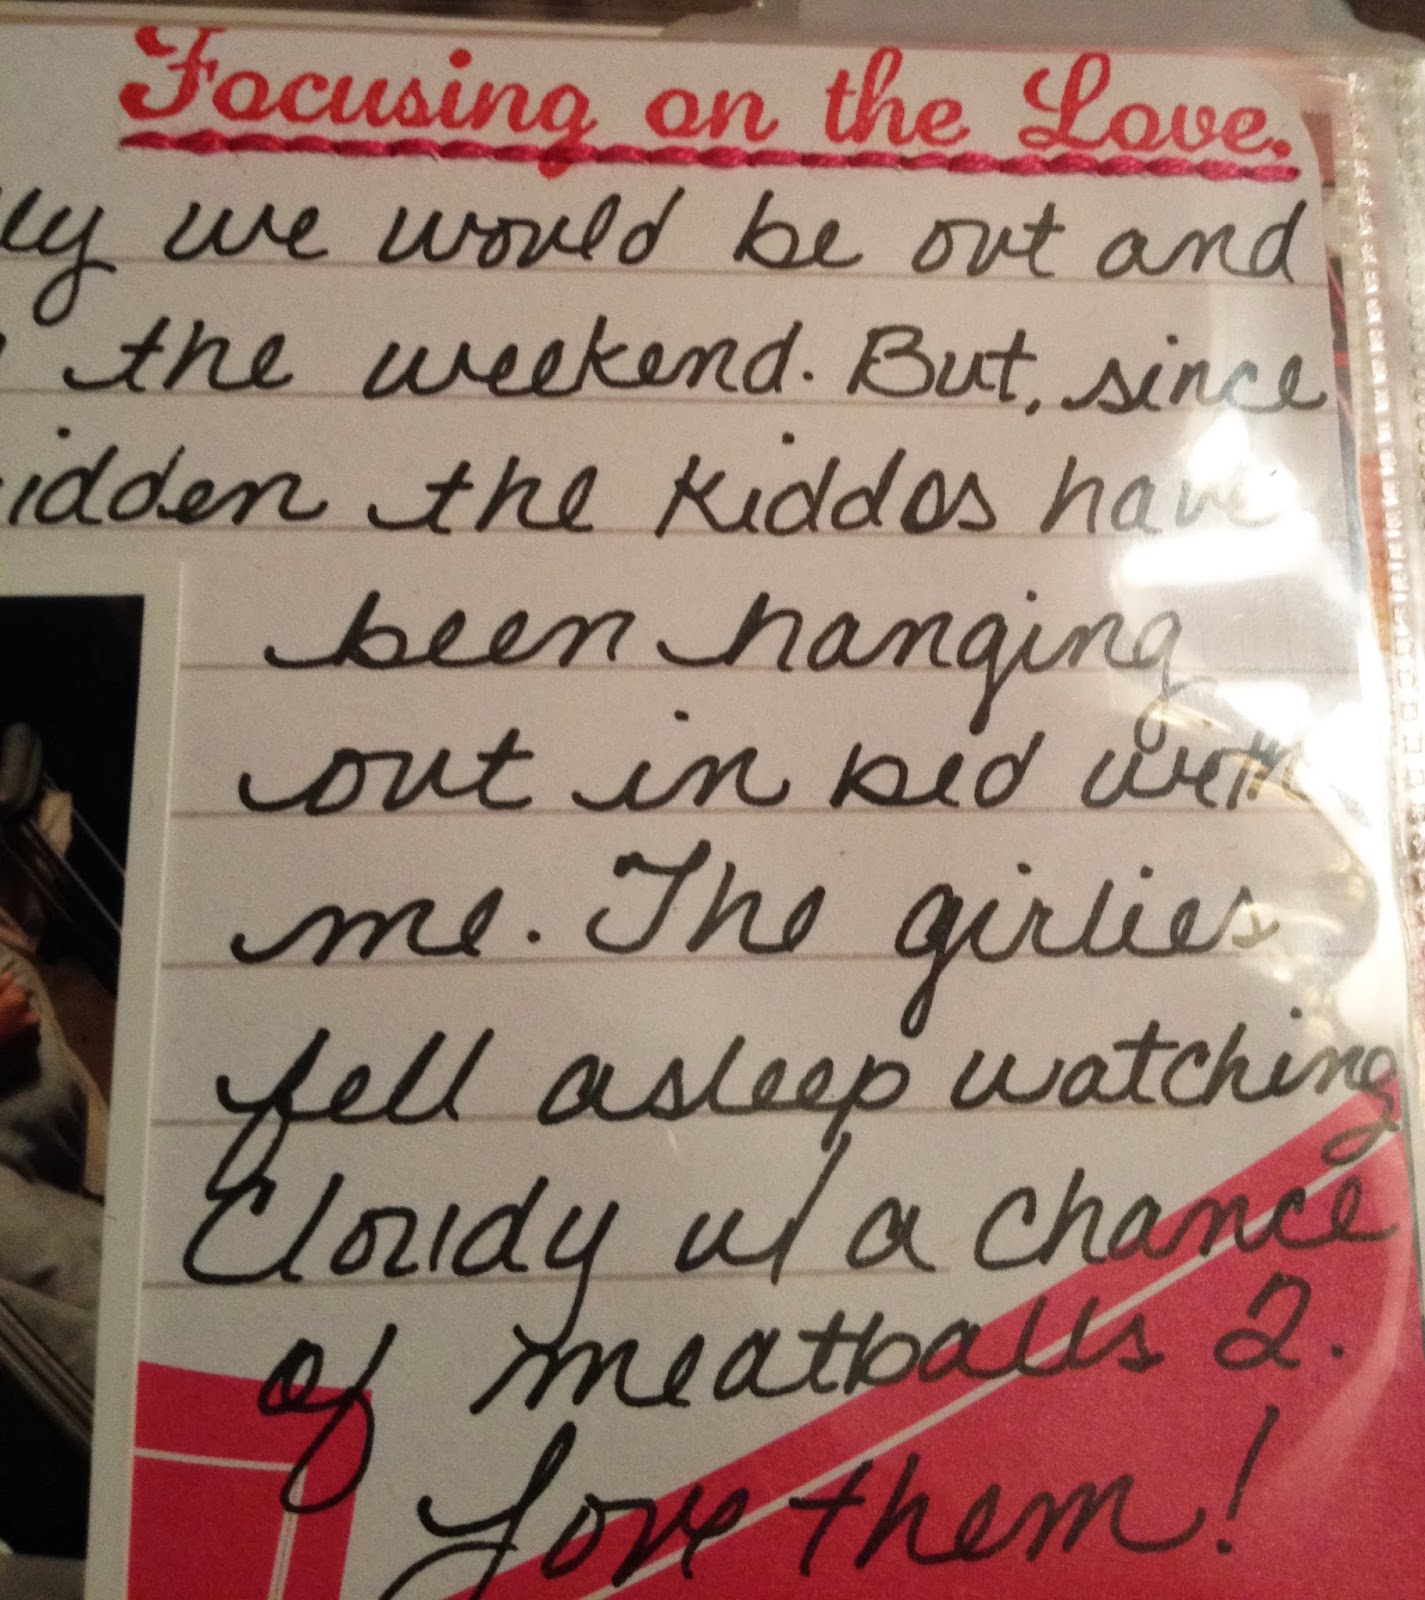 Focusing on the Love.
we would be out and
the weekend. But, since
the kiddos have
been hanging
out in bed with
me. The girlies
fell asleep watching
Cloudy w/ a chance
of meatballs 2.
Love them!